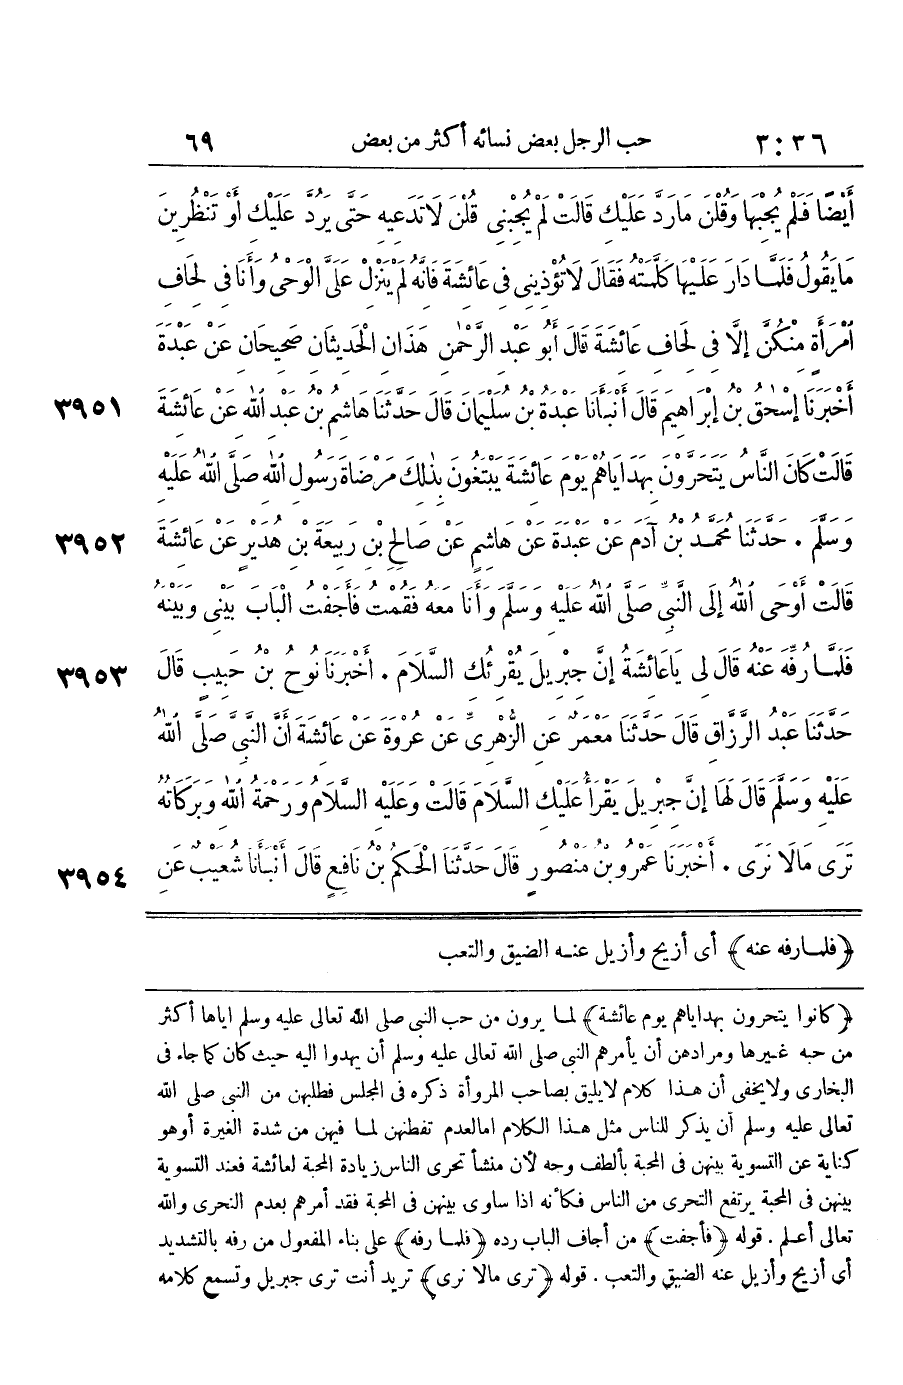 ٣:٣٦ حب الرجل بعض نسائه أكثر من بعض ٦٩
أَيْضًا فَلَمْ يُجِبْهَا وَقُلْنَ مَارَدَّ عَلَيْكِ قَالَتْ لَمْ يُجِبْنِى قُلْنَ لَاتَدَعِيهِ حَتَّى يَرُدَّ عَلَيْكِ أَوْ تَنْظُرِينَ
مَايَقُولُ فَلَمَّا دَارَ عَلَيْهَا كَلَّمَتْهُ فَقَالَ لَاتُؤْذِينِى فِى عَائِشَةَ فَانَّهُ لَمْ يَنْزِلْ عَلَىَّ الْوَحْىُ وَأَنَا فِى لِحَافِ
امْرَأَةٍ مِنْكُنَّ إلَّا فِى لِحَافِ عَائِشَةَ قَالَ أَبُو عَبْدِ الرَّحْمٰنِ هَذَانِ الْحَدِيثَانِ صَحِيحَانِ عَنْ عَبْدَةَ
٣٩٥١ أَخْبَرَنَا إسْحٰقُ بْنُ إبْرَاهِيمَ قَالَ أَنْبَأَنَا عَبْدَةُ بْنُ سُلَيْمَانَ قَالَ حَدَّثَنَا هَاشِمُ بْنُ عَبْدِ اللهِ عَنْ عَائِشَةَ
قَالَتْ كَانَ النَّاسُ يَتَحَرَّوْنَ بِهَدَايَاهُمْ يَوْمَ عَائِشَةَ يَبْتَغُونَ بِذٰلِكَ مَرْضَاةَ رَسُولِ اللهِ صَلَّى اللهُ عَلَيْهِ
٣٩٥٢ وَسَلَّمَ . حَدَّثَنَا مُحَمَّدُ بْنُ آدَمَ عَنْ عَبْدَةَ عَنْ هَاشِمٍ عَنْ صَالِحِ بْنِ رَبِيعَةَ بْنِ هُدَيْرٍ عَنْ عَائِشَةَ
قَالَتْ أَوْحَى اللهُ إلَى النَّبِىِّ صَلَّى اللهُ عَلَيْهِ وَسَلَّمَ وَأَنَا مَعَهُ فَقُمْتُ فَأَجَفْتُ الْبَابَ بَيْنِى وَبَيْنَهُ
٣٩٥٣ فَلَمَّا رُفِّهَ عَنْهُ قَالَ لِى يَاعَائِشَةُ إنَّ جِبْرِيلَ يُقْرِئُكِ السَّلَامَ . أَخْبَرَنَا نُوحُ بْنُ حَبِيبٍ قَالَ
حَدَّثَنَا عَبْدُ الرَّزَّاقِ قَالَ حَدَّثَنَا مَعْمَرٌ عَنِ الزُّهْرِىِّ عَنْ عُرْوَةَ عَنْ عَائِشَةَ أَنَّ النَّبِىَّ صَلَّى اللهُ
عَلَيْهِ وَسَلَّمَ قَالَ لَهَا إنَّ جِبْرِيلَ يَقْرَأُ عَلَيْكِ السَّلَامَ قَالَتْ وَعَلَيْهِ السَّلَامُ وَرَحْمَةُ اللهِ وَبَرَكَاتُهُ
٣٩٥٤ تَرَى مَالَا نَرَى . أَخْبَرَنَا عَمْرُو بْنُ مَنْصُورٍ قَالَ حَدَّثَنَا الْحَكَمُ بْنُ نَافِعٍ قَالَ أَنْبَأَنَا شُعَيْبٌ عَنِ
﴿فلما رفه عنه﴾ أى أزيح وأزيل عنه الضيق والتعب
﴿كانوا يتحرون بهداياهم يوم عائشة﴾ لما يرون من حب النبى صلى الله تعالى عليه وسلم اياها أكثر
من حبه غيرها ومرادهن أن يأمرهم النبى صلى الله تعالى عليه وسلم أن يهدوا اليه حيث كان كما جاء فى
البخارى ولايخفى أن هذا كلام لايليق بصاحب المروأة ذكره فى المجلس فطلبهن من النبى صلى الله
تعالى عليه وسلم أن يذكر للناس مثل هذا الكلام امالعدم تفطنهن لما فيهن من شدة الغيرة أوهو
كناية عن التسوية بينهن فى المحبة بألطف وجه لأن منشأ تحرى الناس زيادة المحبة لعائشة فعند التسوية
بينهن فى المحبة يرتفع التحرى من الناس فكأنه اذا ساوى بينهن فى المحبة فقد أمرهم بعدم التحرى والله
تعالى أعلم . قوله ﴿فأجفت﴾ من أجاف الباب رده ﴿فلما رفه﴾ على بناء المفعول من رفه بالتشديد
أى أزيح وأزيل عنه الضيق والتعب . قوله ﴿ترى مالا نرى﴾ تريد أنت ترى جبريل وتسمع كلامه